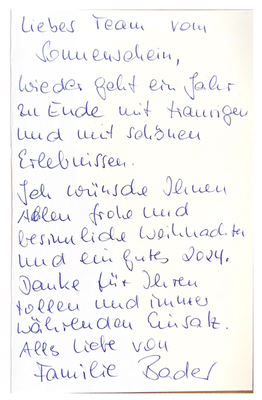 Liebes Team vom
Sonnenschein,
wieder geht ein Jahr
zu Ende mit traurigen
und mit schönen
Erlebnissen.
Ich wünsche Ihnen
Allen frohe und
besinnliche Weihnachten
und ein gutes 2024.
Danke für Ihren
tollen und immer
währenden Einsatz.
Alles Liebe von
Familie Bader